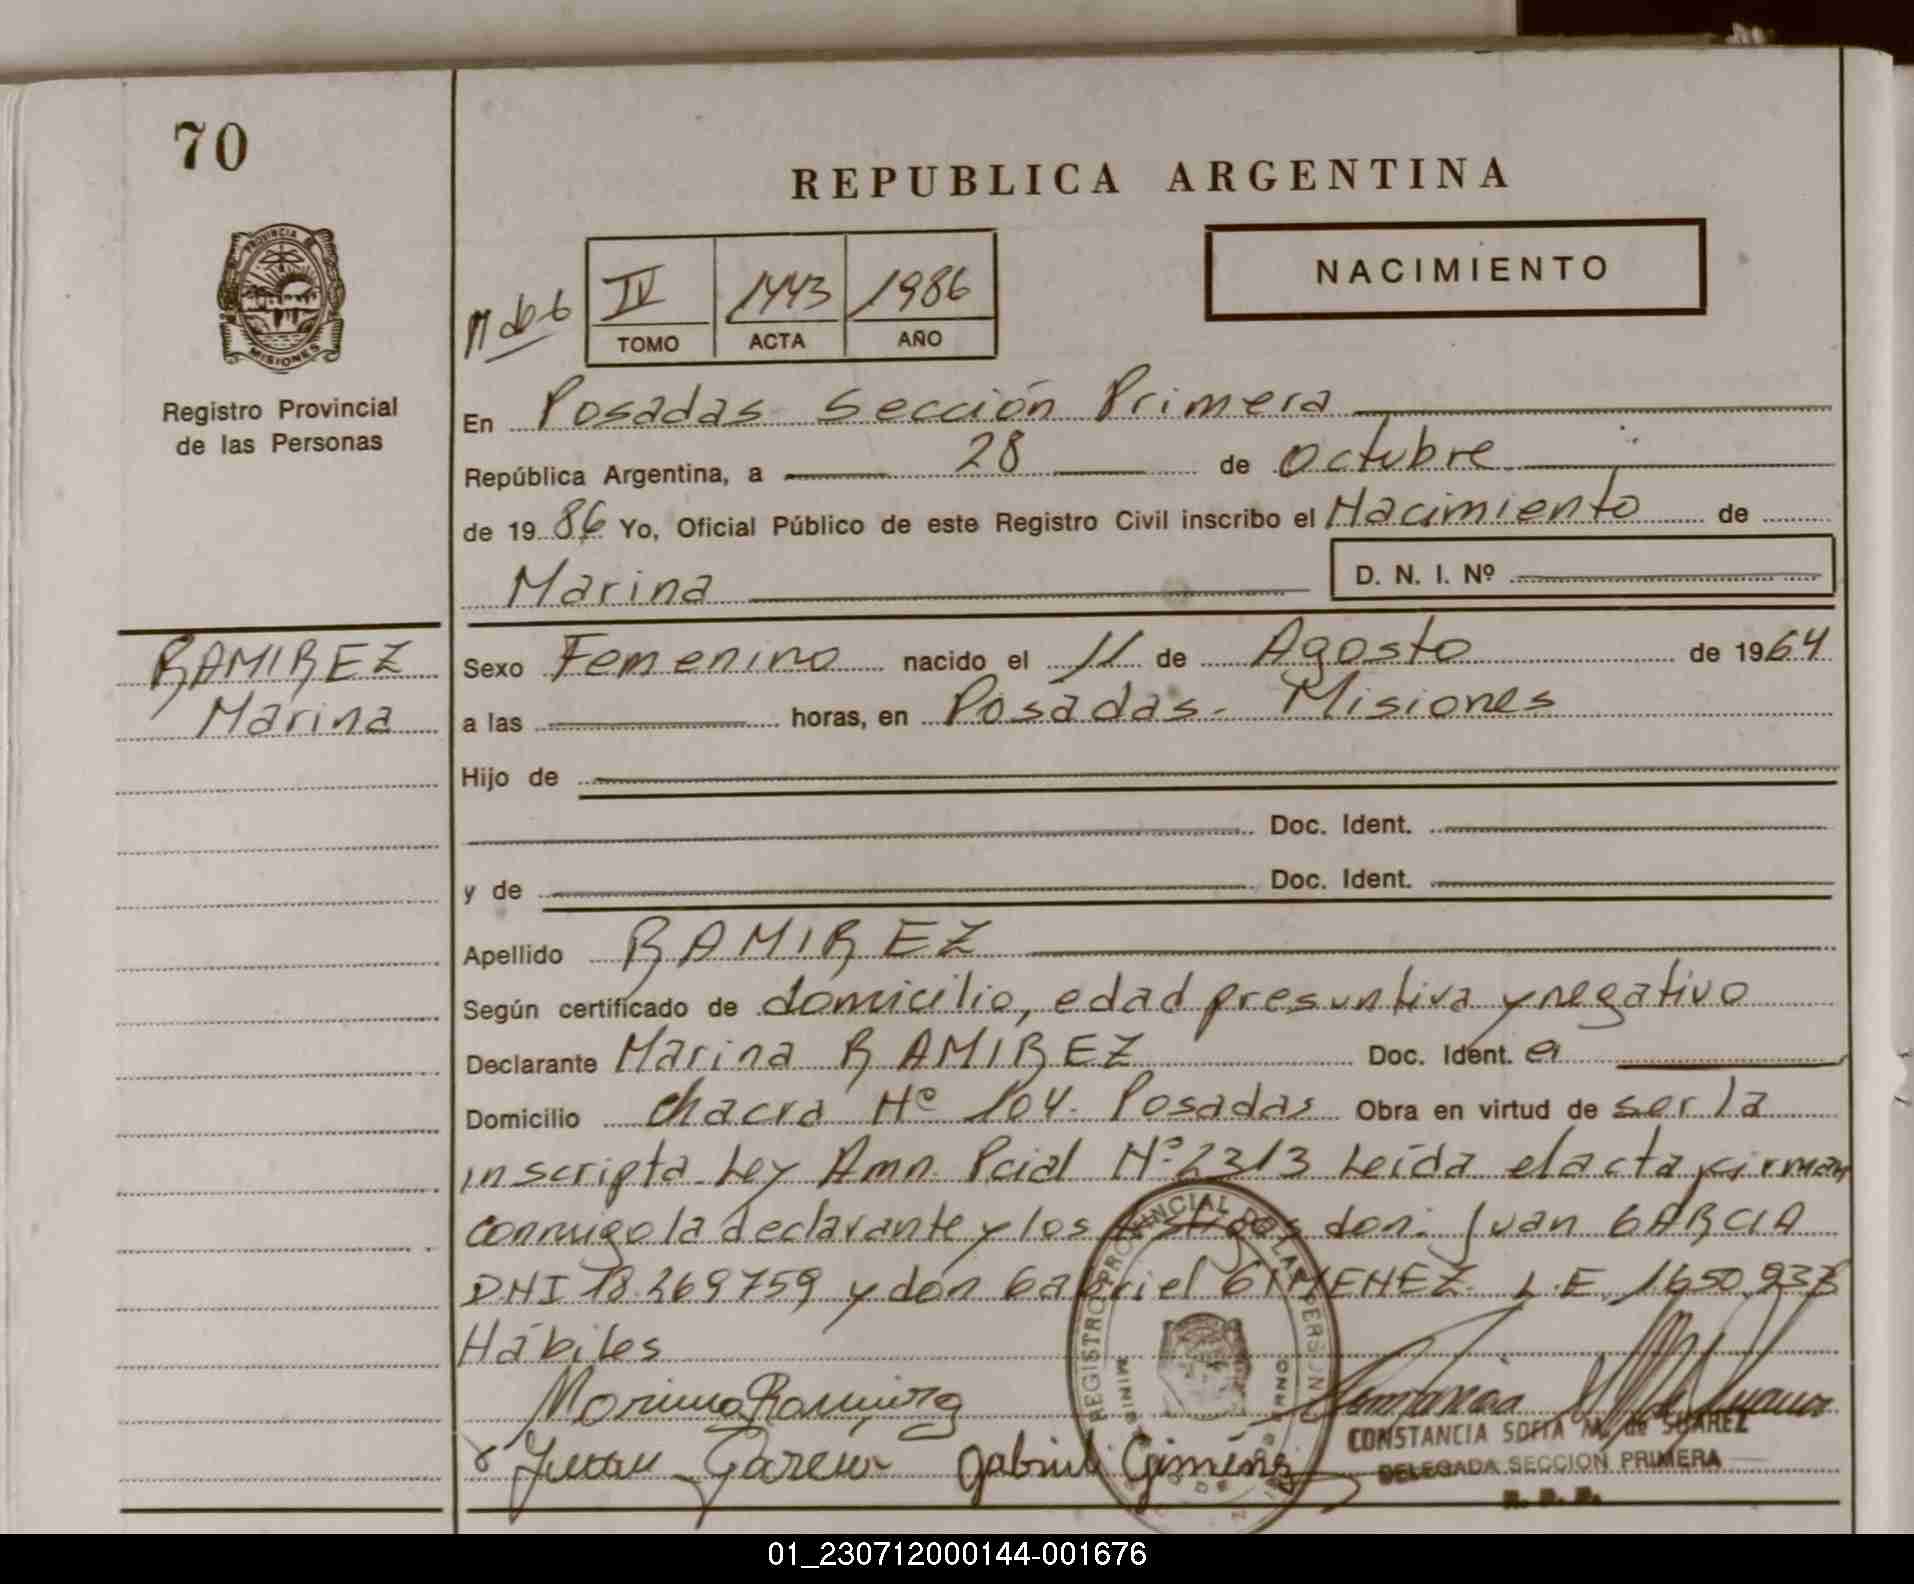 70
REPUBLICA ARGENTINA
NACIMIENTO
PROVINCIA DE
MISIONES
IV 1443 1986
TOMO ACTA AÑO
Registro Provincial
de las Personas
En Posadas Sección Primera
República Argentina, a 28 de Octubre
de 1986 Yo, Oficial Público de este Registro Civil inscribo el Nacimiento de
Marina D. N. I. Nº
RAMIREZ
Marina
Sexo Femenino nacido el 11 de Agosto de 1964
a las horas, en Posadas - Misiones
Hijo de
Doc. Ident.
y de Doc. Ident.
Apellido RAMIREZ
Según certificado de domicilio, edad presuntiva y negativo
Declarante Marina RAMIREZ Doc. Ident.
Domicilio Chacra Nº 104. Posadas Obra en virtud de ser la
inscripta Ley Amn. Pcial Nº 2313 Leída el acta firman
conmigo la declarante y los testigos don: Juan GARCIA
DNI 18.269759 y don Gabriel GIMENEZ L.E. 1.650.937
Hábiles
Marina Ramirez
Juan Garcia Gabriel Giménez
REGISTRO PROVINCIAL DE LAS PERSONAS
CONSTANCIA SOFIA M. de SUAREZ
DELEGADA SECCION PRIMERA
R. P. P.
01_230712000144-001676